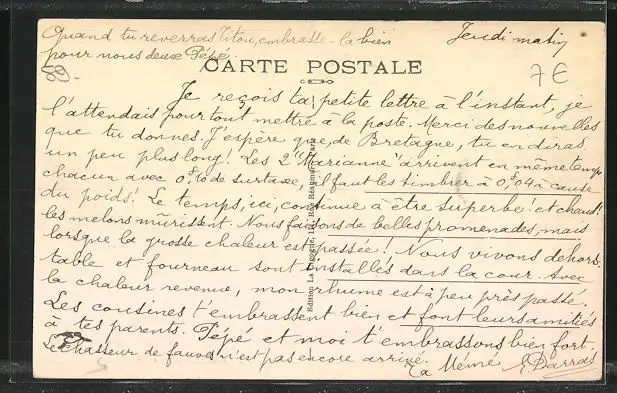 Quand tu reverras Titou, embrasse-la bien
pour nous deux Pépé.
Jeudi matin
CARTE POSTALE
7€
Je reçois ta petite lettre à l'instant, je
l'attendais pour tout mettre à la poste. Merci des nouvelles
que tu donnes. J'espère que, de Bretagne, tu en diras
un peu plus long! Les 2 "Marianne" arrivent en même temps
chacun avec 0F,10 de surtaxe, il faut les timbrer à 0F,04 à cause
du poids! Le temps, ici, continue à être superbe! et chaud!
les melons mûrissent. Nous faisons de belles promenades, mais
lorsque la grosse chaleur est passée! Nous vivons dehors,
table et fourneau sont installés dans la cour. Avec
la chaleur revenue, mon rhume est à peu près passé.
Les cousines t'embrassent bien et font leurs amitiés
à tes parents. Pépé et moi t'embrassons bien fort.
Le chasseur de fauves n'est pas encore arrivé.
Ta Mémé
Darras
Edition La Cigogne, Rue Réaumur, Paris